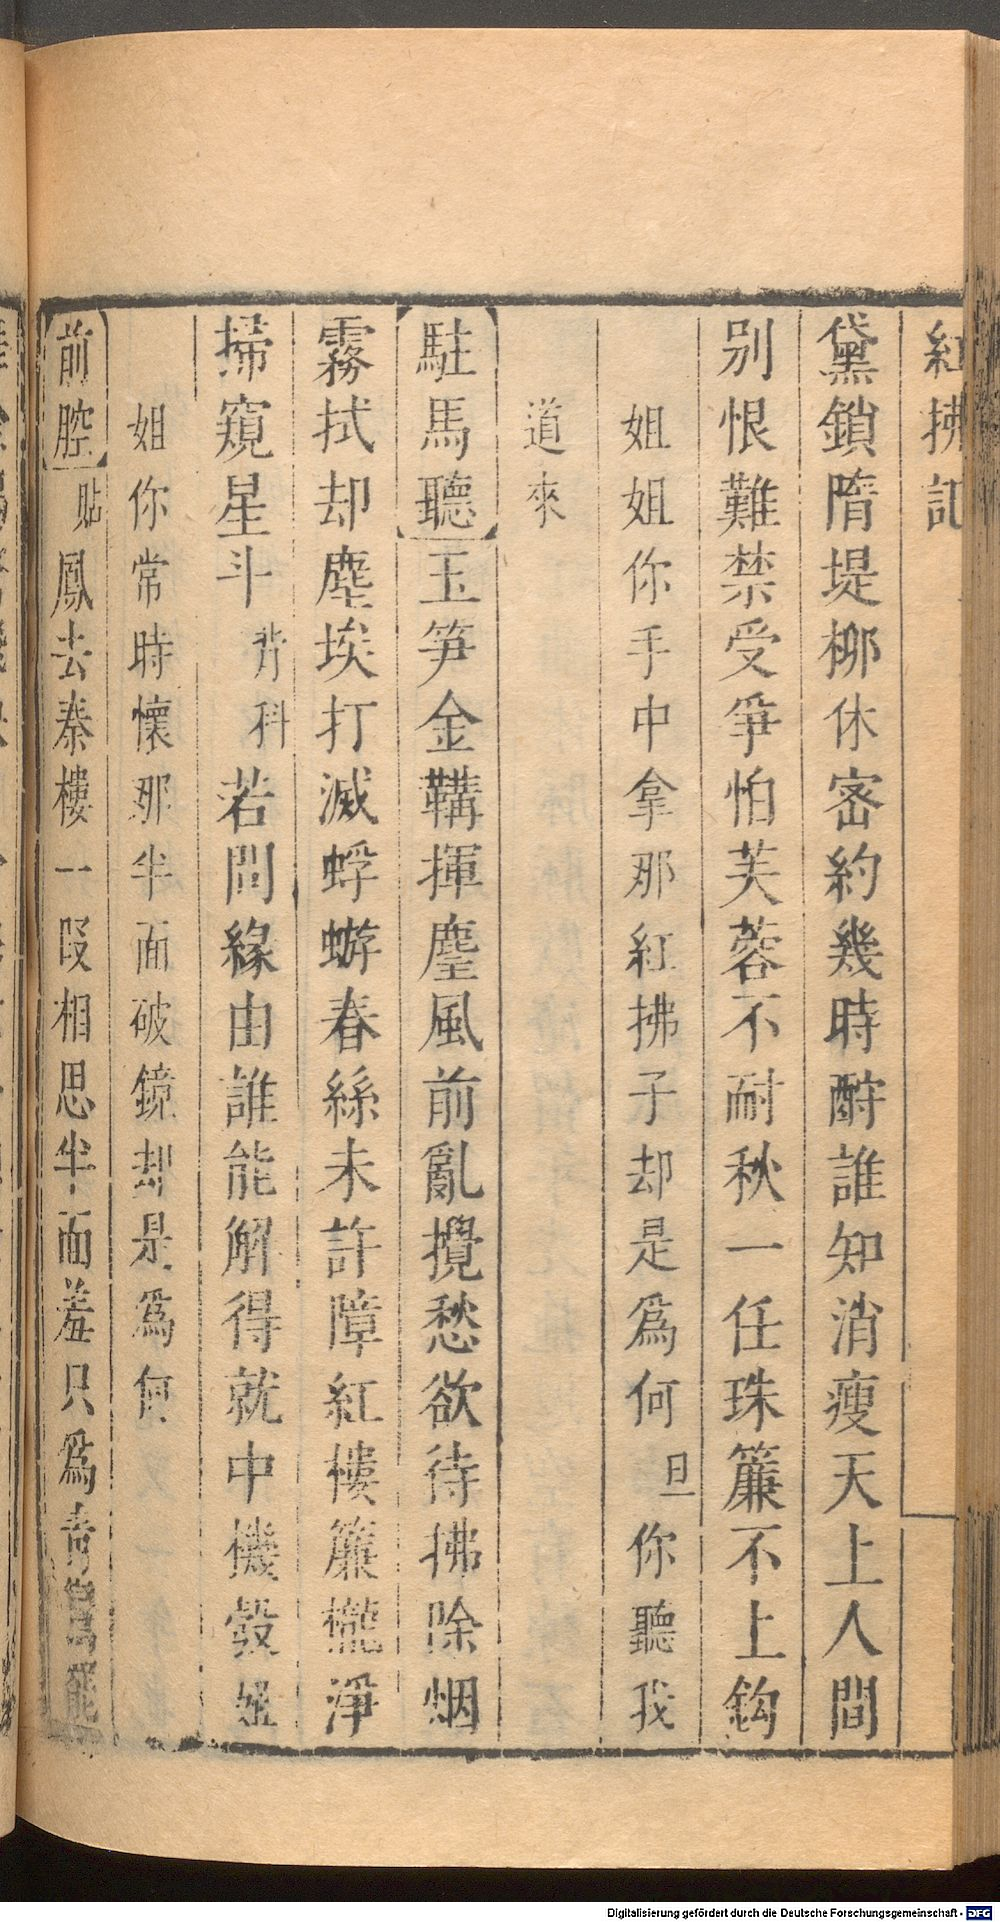 紅拂記
黛鎖隋堤柳休密約幾時酧誰知消瘦天上人間
別恨難禁受爭怕芙蓉不耐秋一任珠簾不上鈎
姐姐你手中拿那紅拂子却是爲何旦你聽我
道來
駐馬聽玉笋金鞲揮麈風前亂攪愁欲待拂除烟
霧拭却塵埃打滅蜉蝣春絲未許障紅樓簾櫳淨
掃窺星斗背科若問緣由誰能解得就中機彀姐
姐你常時懷那半面破鏡却是爲何
前腔貼鳳去秦樓一段相思半面羞只爲青鸞
Digitalisierung gefördert durch die Deutsche Forschungsgemeinschaft - DFG